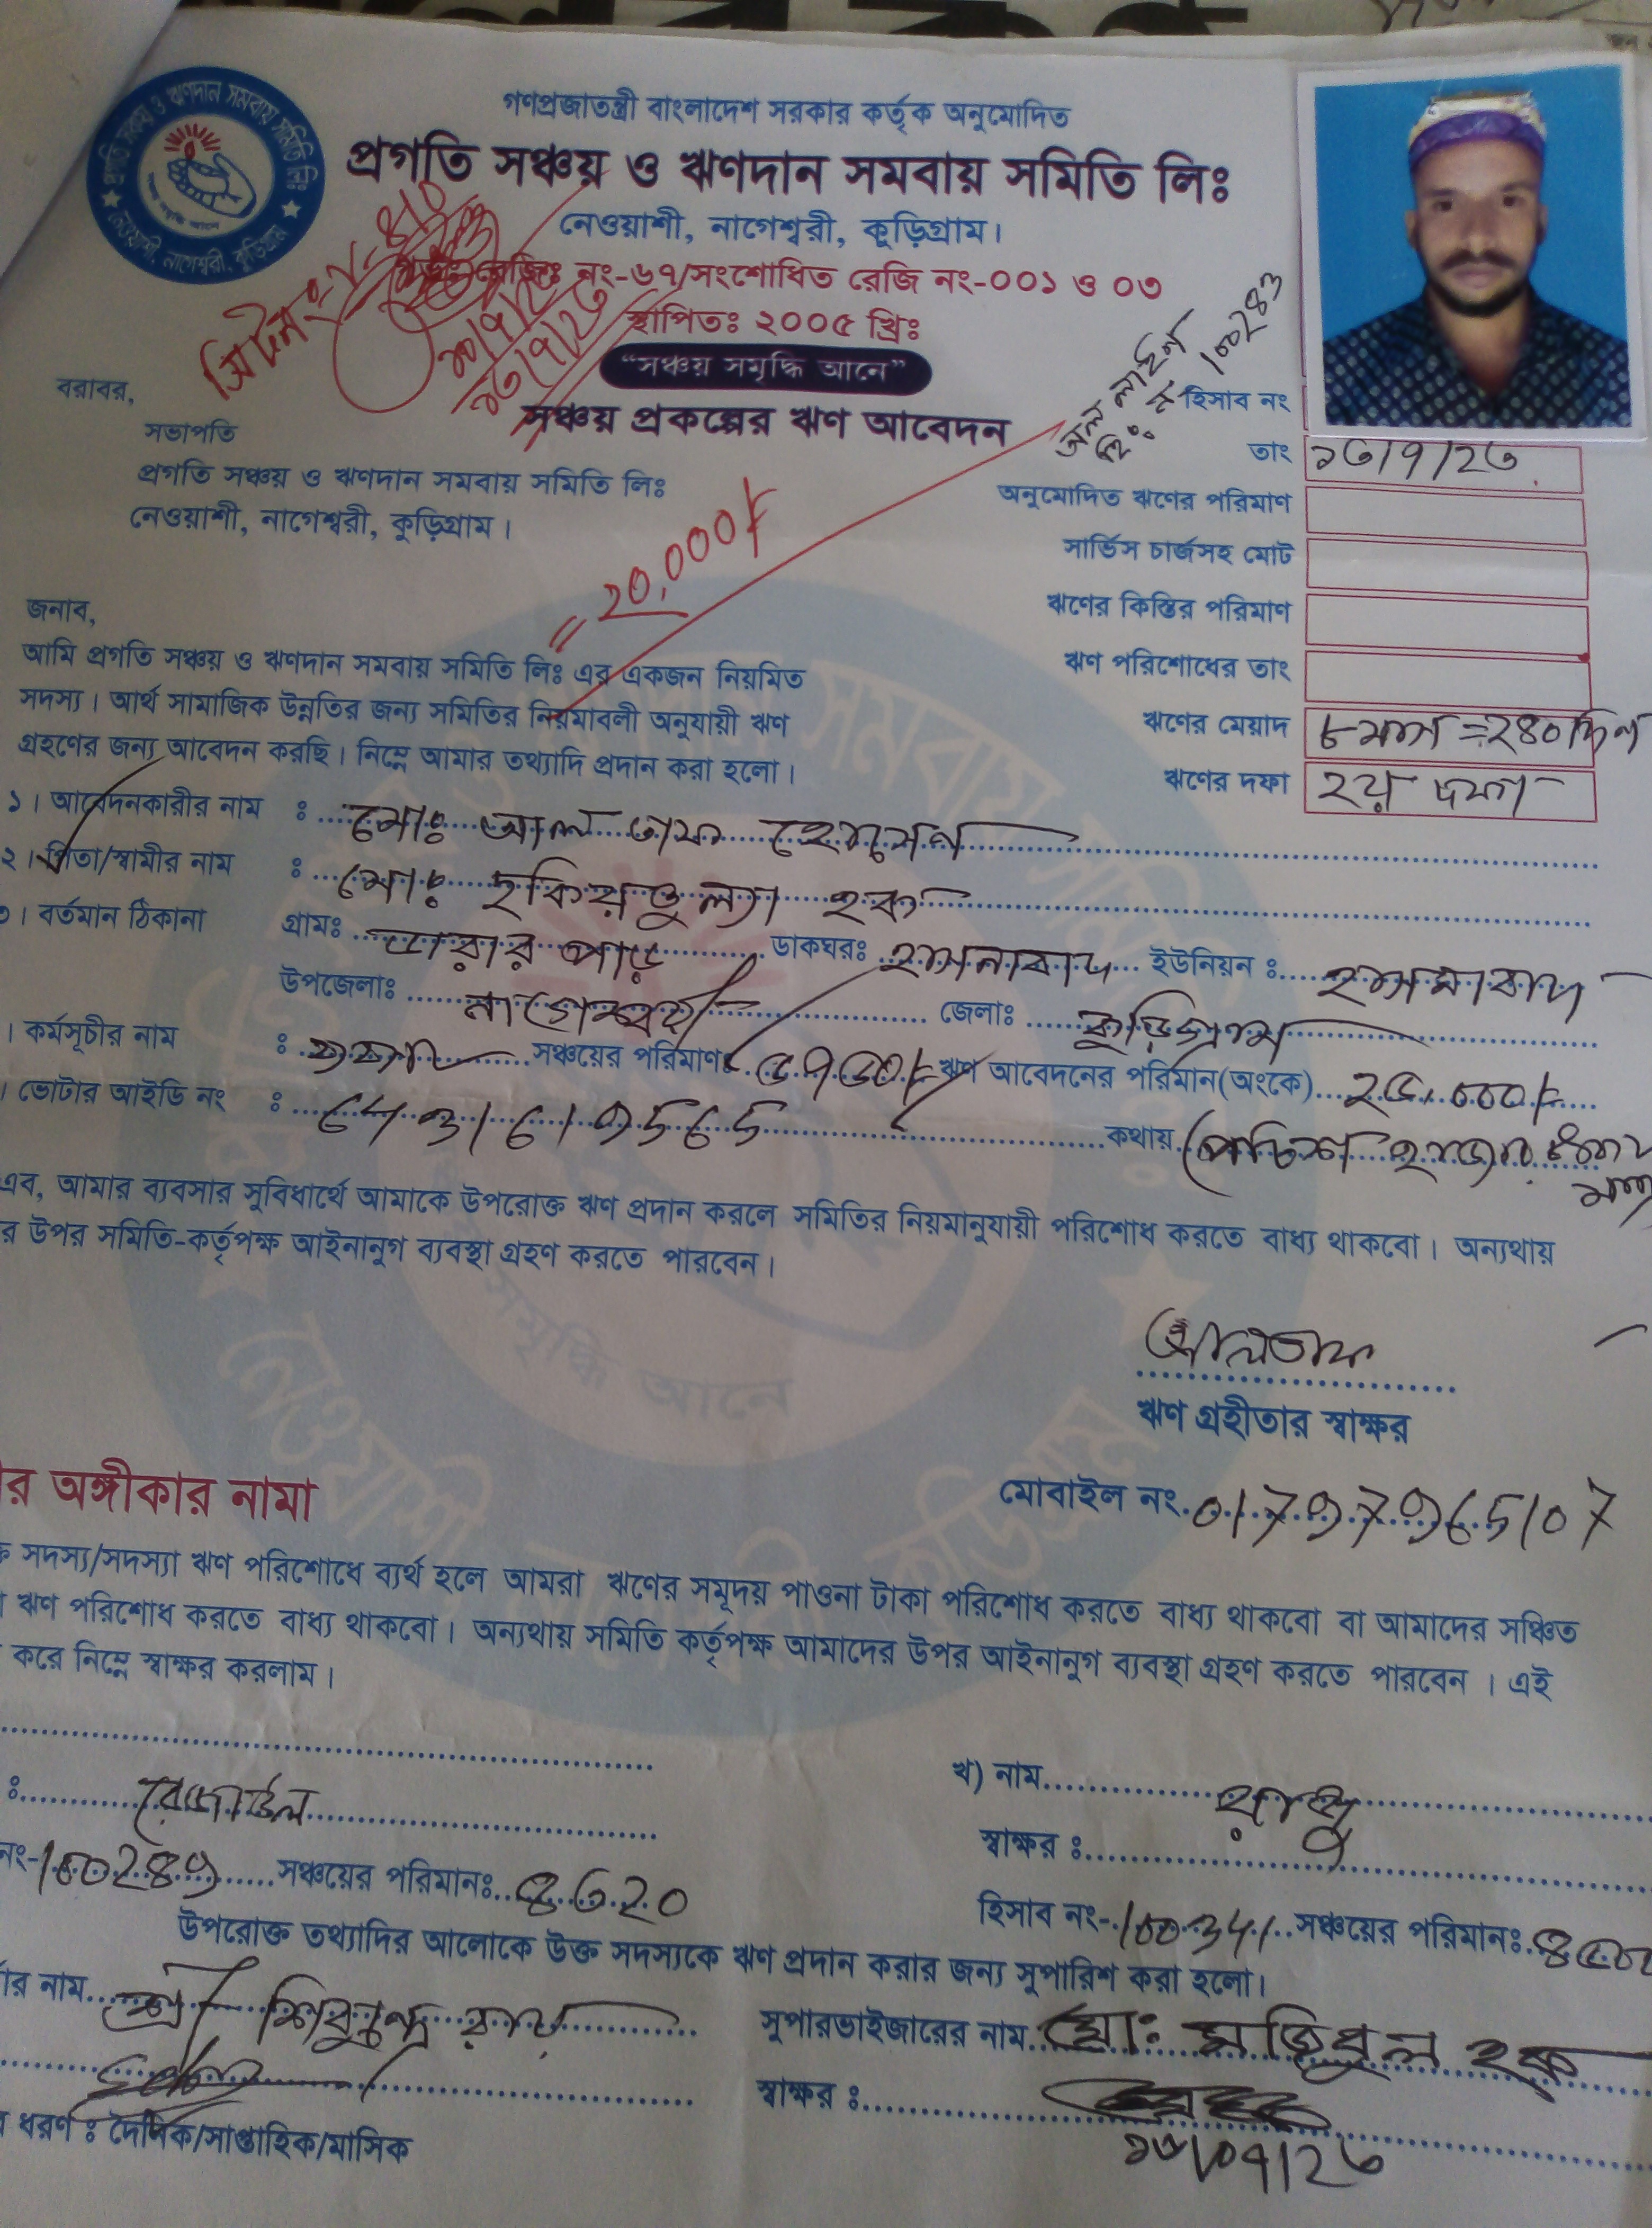 গণপ্রজাতন্ত্রী বাংলাদেশ সরকার কর্তৃক অনুমোদিত
প্রগতি সঞ্চয় ও ঋণদান সমবায় সমিতি লিঃ
নেওয়াশী, নাগেশ্বরী, কুড়িগ্রাম।
রেজিঃ নং-৬৭/সংশোধিত রেজি নং-০০১ ও ০৩
স্থাপিতঃ ২০০৫ খ্রিঃ
“সঞ্চয় সমৃদ্ধি আনে”
সঞ্চয় প্রকল্পের ঋণ আবেদন
অন লাইন
হিঃ নং 100283
হিসাব নং
তাং ১৩/৭/২৩
অনুমোদিত ঋণের পরিমাণ
সার্ভিস চার্জসহ মোট
ঋণের কিস্তির পরিমাণ
ঋণ পরিশোধের তাং
ঋণের মেয়াদ ৮ মাস = ২৪০ দিন
ঋণের দফা ২য় দফা
বরাবর,
সভাপতি
প্রগতি সঞ্চয় ও ঋণদান সমবায় সমিতি লিঃ
নেওয়াশী, নাগেশ্বরী, কুড়িগ্রাম।
= ২০,০০০/-
জনাব,
আমি প্রগতি সঞ্চয় ও ঋণদান সমবায় সমিতি লিঃ এর একজন নিয়মিত
সদস্য। আর্থ সামাজিক উন্নতির জন্য সমিতির নিয়মাবলী অনুযায়ী ঋণ
গ্রহণের জন্য আবেদন করছি। নিম্নে আমার তথ্যাদি প্রদান করা হলো।
১। আবেদনকারীর নাম : মোঃ আলতাফ হোসেন
২। পিতা/স্বামীর নাম : মোঃ হক
৩। বর্তমান ঠিকানা গ্রামঃ পাড় ডাকঘরঃ হাসনাবাদ ইউনিয়ন : হাসনাবাদ
উপজেলাঃ নাগেশ্বরী জেলাঃ কুড়িগ্রাম
। কর্মসূচীর নাম : সঞ্চয়ের পরিমাণঃ ৫৭৫০/- ঋণ আবেদনের পরিমান(অংকে) ২৫,০০০/-
। ভোটার আইডি নং : কথায় (পঁচিশ হাজার টাকা মাত্র
এব, আমার ব্যবসার সুবিধার্থে আমাকে উপরোক্ত ঋণ প্রদান করলে সমিতির নিয়মানুযায়ী পরিশোধ করতে বাধ্য থাকবো। অন্যথায়
র উপর সমিতি-কর্তৃপক্ষ আইনানুগ ব্যবস্থা গ্রহণ করতে পারবেন।
আলতাফ
ঋণ গ্রহীতার স্বাক্ষর
র অঙ্গীকার নামা
মোবাইল নং. 01797965107
ক্ত সদস্য/সদস্যা ঋণ পরিশোধে ব্যর্থ হলে আমরা ঋণের সমূদয় পাওনা টাকা পরিশোধ করতে বাধ্য থাকবো বা আমাদের সঞ্চিত
া ঋণ পরিশোধ করতে বাধ্য থাকবো। অন্যথায় সমিতি কর্তৃপক্ষ আমাদের উপর আইনানুগ ব্যবস্থা গ্রহণ করতে পারবেন। এই
করে নিম্নে স্বাক্ষর করলাম।
খ) নাম
: রেজাউল
স্বাক্ষর :
নং-100289 সঞ্চয়ের পরিমানঃ ৪৩২০
হিসাব নং-100341 সঞ্চয়ের পরিমানঃ
উপরোক্ত তথ্যাদির আলোকে উক্ত সদস্যকে ঋণ প্রদান করার জন্য সুপারিশ করা হলো।
ার নাম শ্রী রায়
সুপারভাইজারের নাম মোঃ মজিবুল হক
স্বাক্ষর :
১৩/০৭/২৩
র ধরণ : দৈনিক/সাপ্তাহিক/মাসিক